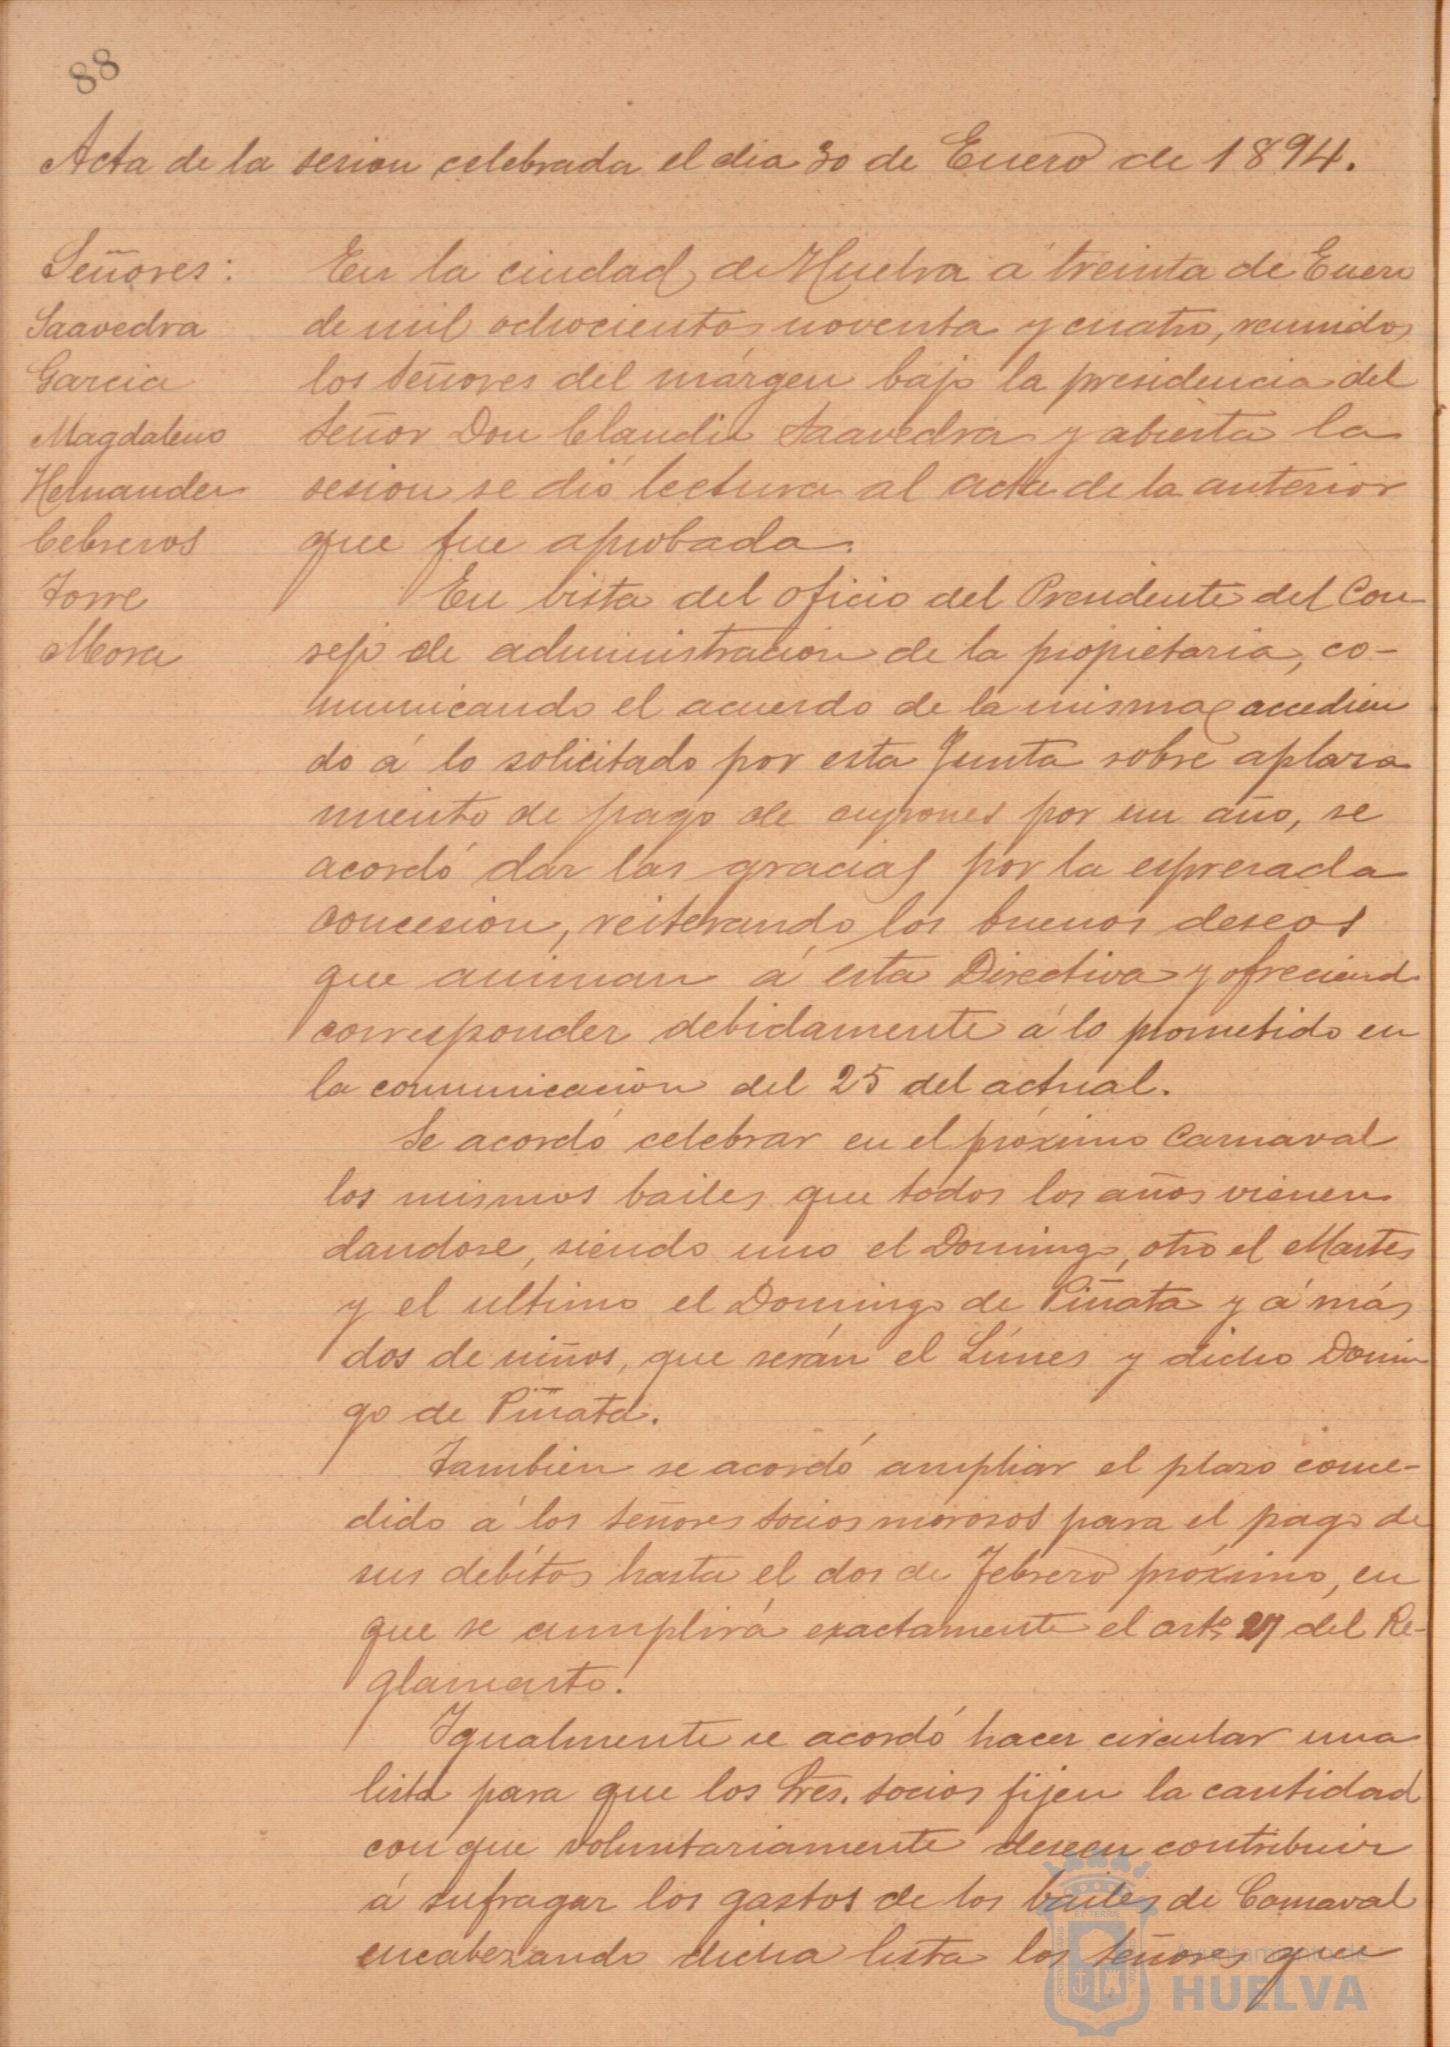 88
Acta de la sesion celebrada el dia 30 de Enero de 1894.
Señores:
Saavedra
Garcia
Magdaleno
Hernandez
Cebreros
Torre
Mora
En la ciudad de Huelva á treinta de Enero
de mil ochocientos noventa y cuatro, reunidos
los señores del márgen bajo la presidencia del
señor Don Claudio Saavedra y abierta la
sesion se dió lectura al acta de la anterior
que fue aprobada.
En vista del oficio del Presidente del Con-
sejo de administracion de la propietaria, co-
municando el acuerdo de la misma accedien
do á lo solicitado por esta Junta sobre aplaza
miento de pago de cupones por un año, se
acordó dar las gracias por la espresada
concesion, reiterando los buenos deseos
que animan á esta Directiva y ofreciendo
corresponder debidamente á lo prometido en
la comunicacion del 25 del actual.
Se acordó celebrar en el próximo Carnaval
los mismos bailes que todos los años vienen
dandose, siendo uno el Domingo, otro el Martes
y el ultimo el Domingo de Piñata y á más
dos de niños, que serán el Lúnes y dicho Domin
go de Piñata.
Tambien se acordó ampliar el plazo conce-
dido á los señores socios morosos para el pago de
sus debitos hasta el dos de Febrero próximo, en
que se cumplirá exactamente el arto. 27 del Re-
glamento.
Igualmente se acordó hacer circular una
lista para que los Sres. socios fijen la cantidad
con que voluntariamente deseen contribuir
á sufragar los gastos de los bailes de Carnaval
encabezando dicha lista los señores que
Ayuntamiento de
HUELVA